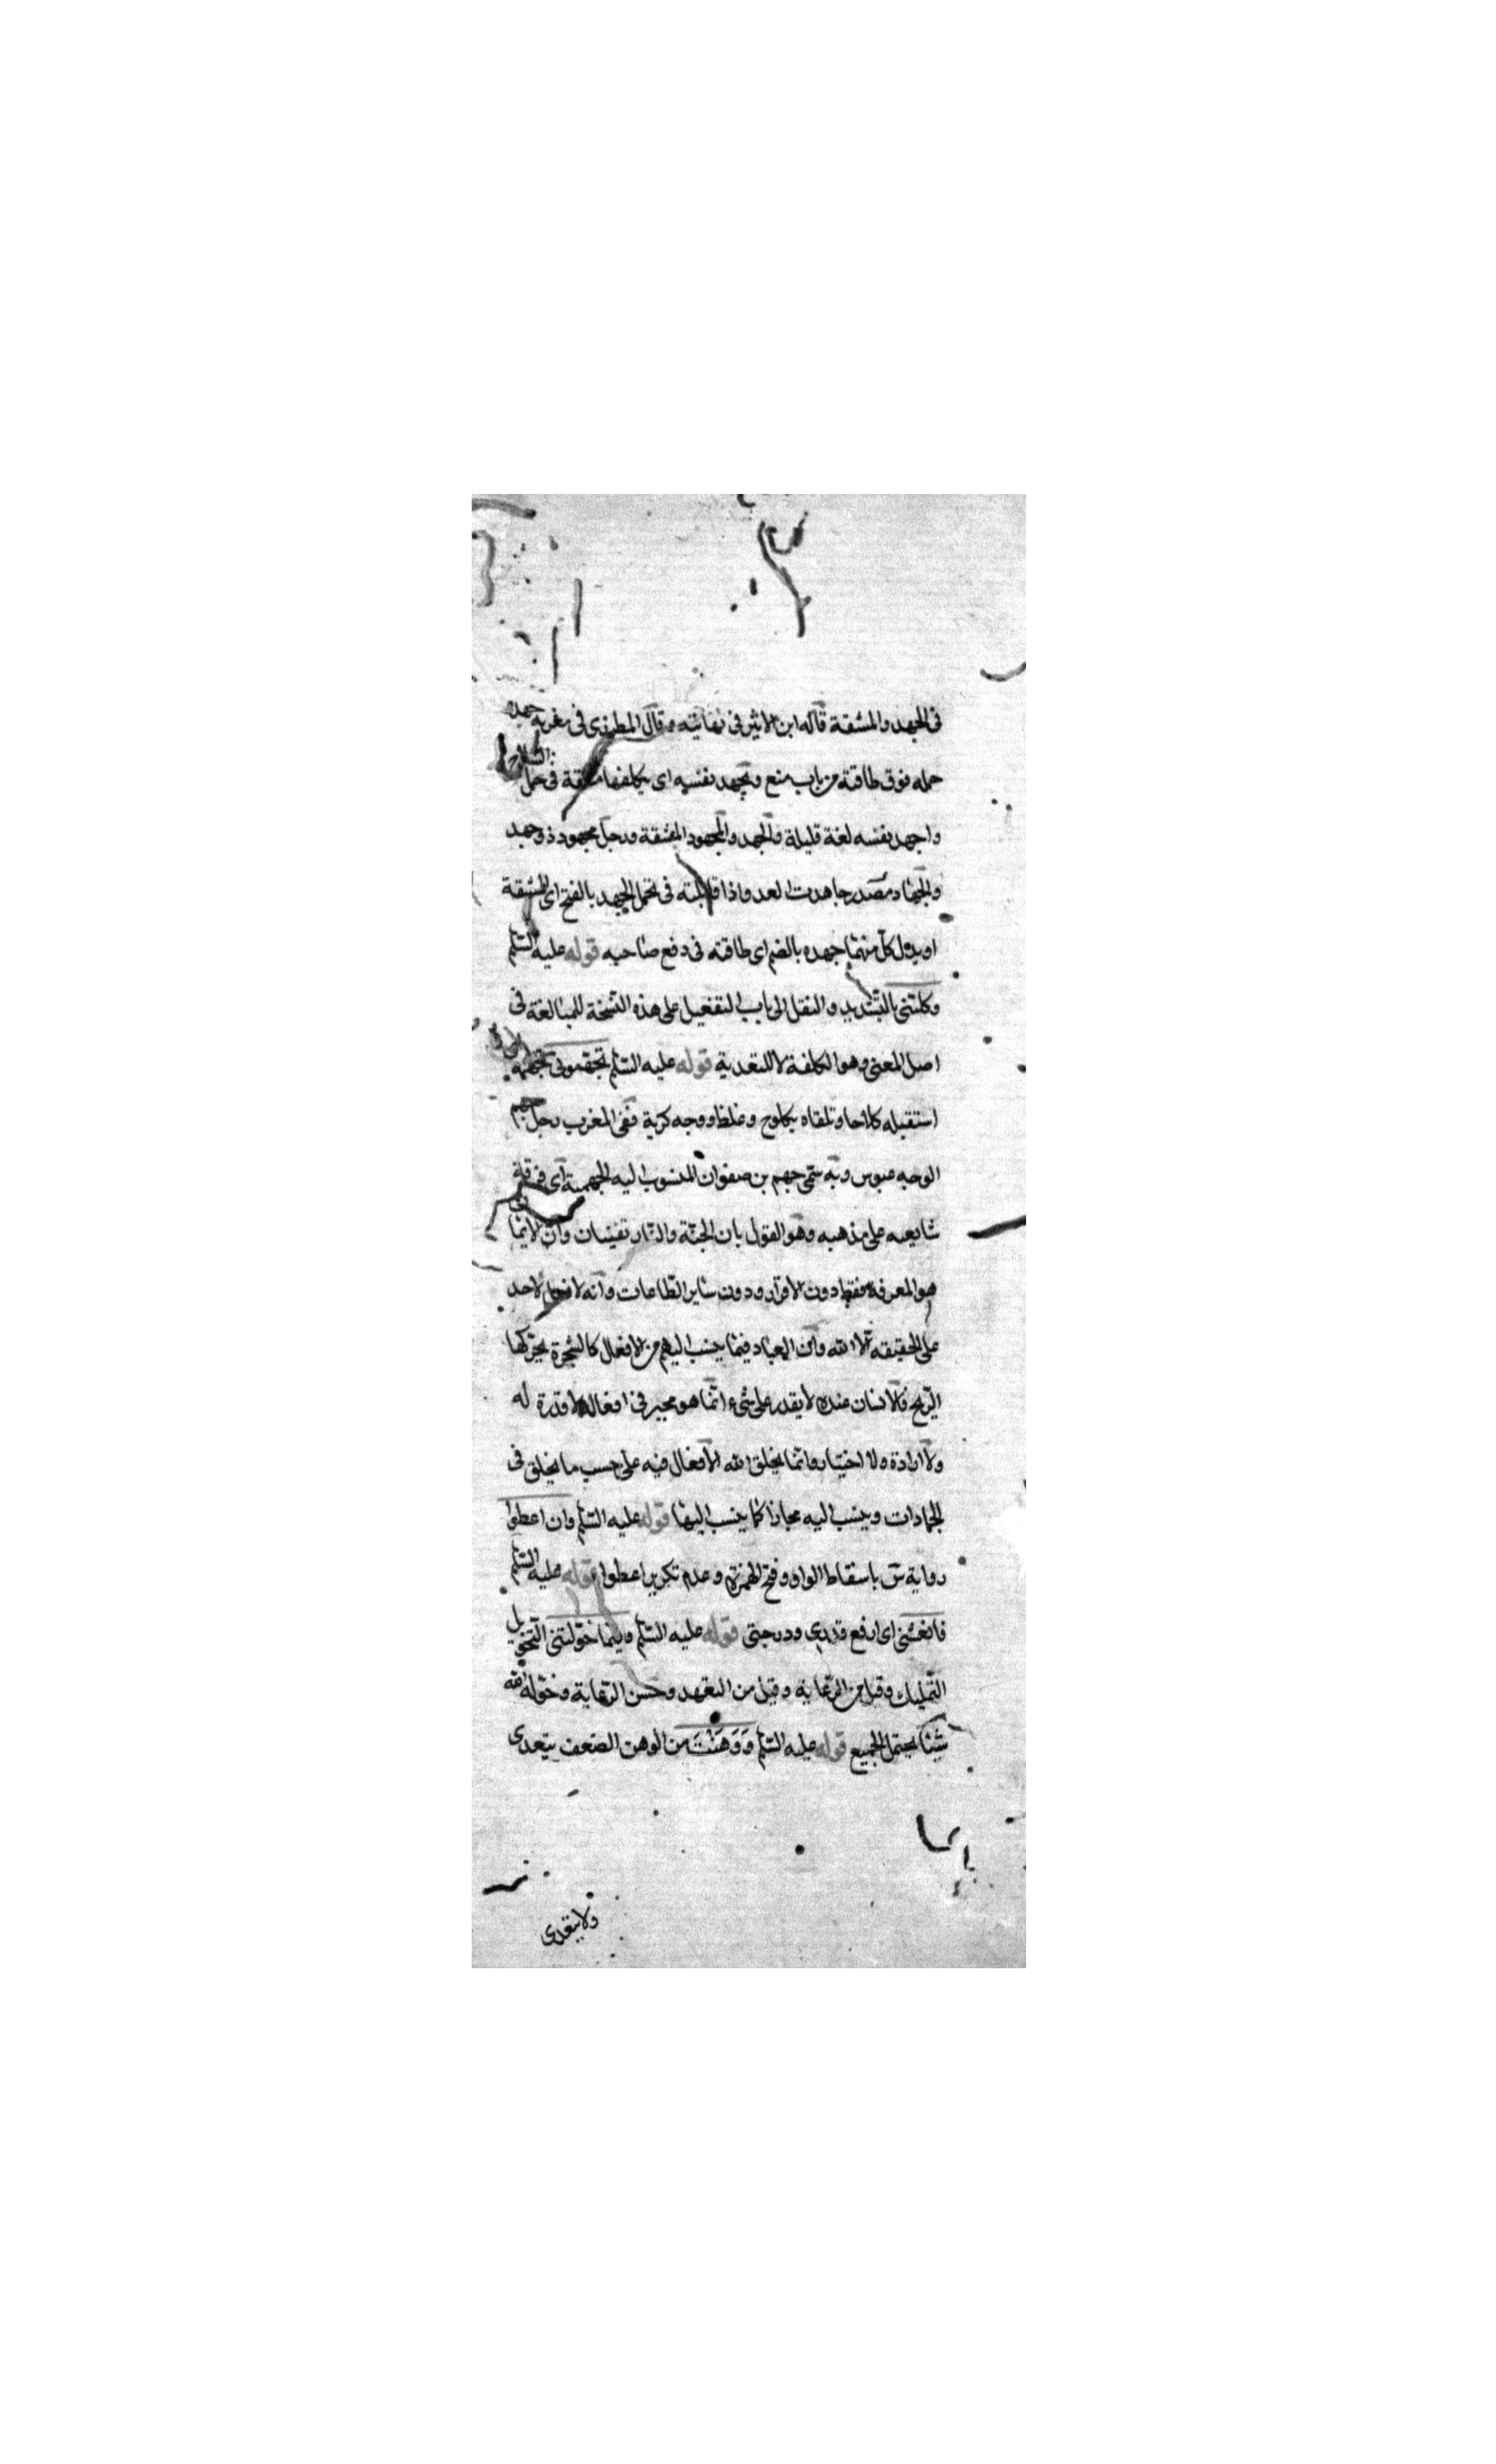 فى الجهد والمشقة قاله ابن الاثير فى نهايته وقال المطرزى فى مغربه جهده
حمله فوق طاقته من باب منع ويجهد نفسه اى يكلفها مشقة فى حمل السلاح
واجهد نفسه لغة قليلة والجهد والمجهود المشقة ورجل مجهود ذو جهد
والجهاد مصدر جاهدت العدو اذا قابلته فى تحمل الجهد بالفتح اى المشقة
او بذل كل منهما جهده بالضم اى طاقته فى دفع صاحبه قوله عليه السلم
وكلتنى بالتشديد والنقل الى باب التفعيل على هذه النسخة للمبالغة فى
اصل المعنى وهو الكلفة لا للتعدية قوله عليه السلم تجهمونى تجهمه
استقبله كالحا وتلقاه بكلوح وغلظ ووجه كريه ففى المغرب رجل جهم
الوجه عبوس وبه سمى جهم بن صفوان المنسوب اليه الجهمية اى فرقة
شايعه على مذهبه وهو القول بان الجنة والنار تفنيان وان الايمان
هو المعرفة فقط دون الاقرار ودون ساير الطاعات وانه لا فعل لاحد
على الحقيقه الا الله وان العباد فيما ينسب اليهم من الافعال كالشجرة يحركها
الريح فالانسان عنده لا يقدر على شىء انما هو مجبر فى افعاله لا قدرة له
ولا ارادة ولا اختيار وانما يخلق الله الافعال فيه على حسب ما يخلق فى
الجمادات وينسب اليه مجازا كما ينسب اليها قوله عليه السلم وان اعطوا
رواية س باسقاط الواو وفتح الهمزة وعدم تكرير اعطوا قوله عليه السلم
فانعشنى اى ارفع قدرى ودرجتى قوله عليه السلم وفيما خولتنى التخويل
التمليك وقيل من الرعاية وقيل من التعهد وحسن الرعاية وخوله الله
شيئا يحتمل الجميع قوله عليه السلم ووهنت من الوهن الضعف يتعدى
ولا يتعدى